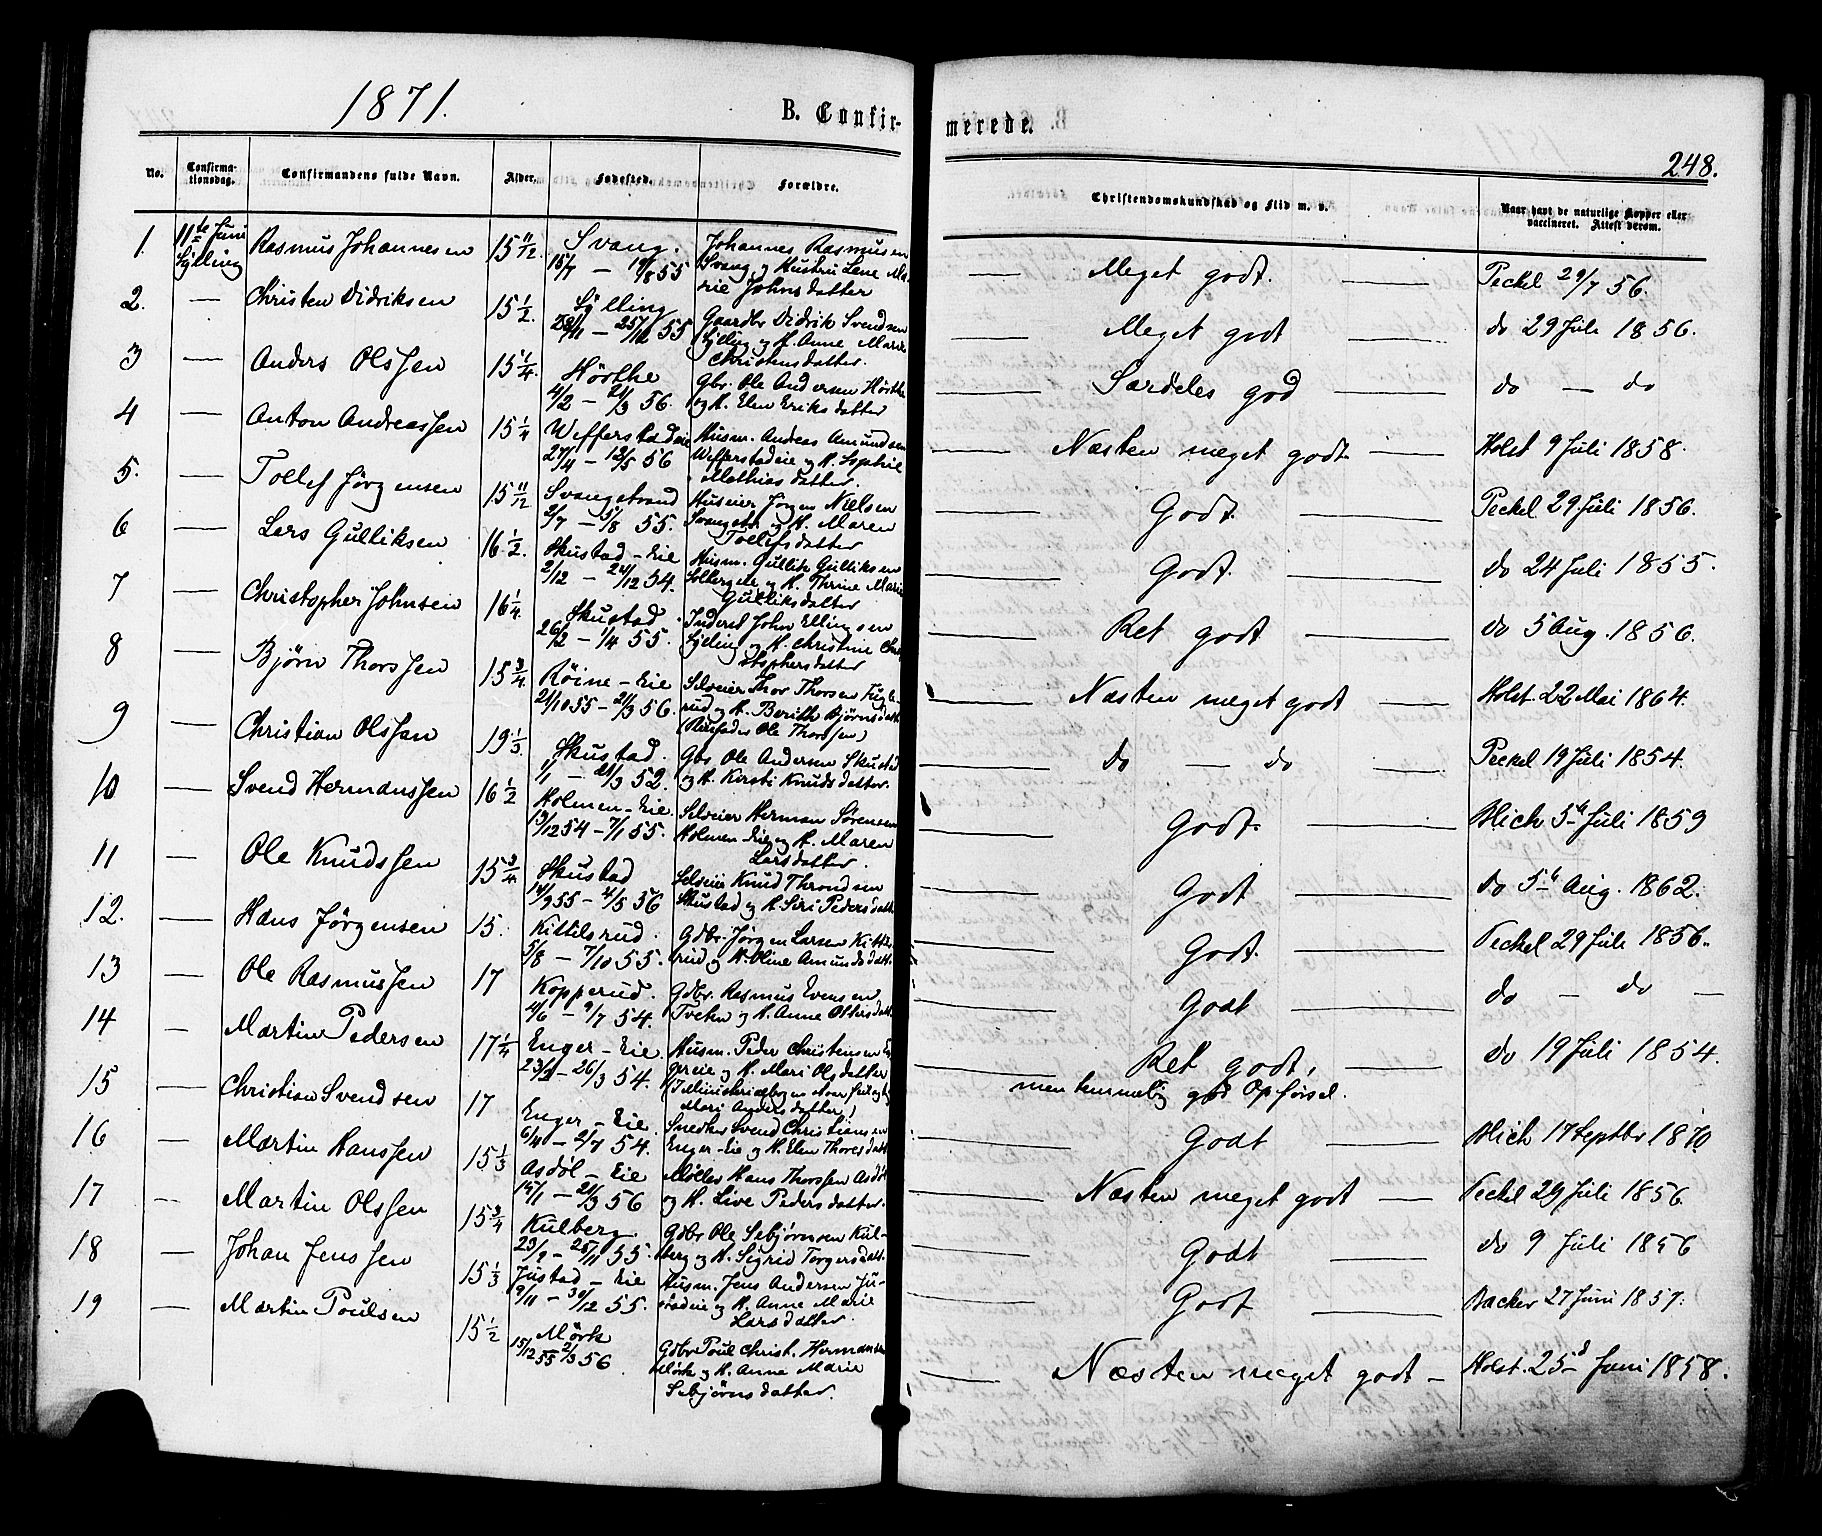 1871.
B. Confir-
merede.
248.
No. Confirma-tionsdag. Confirmandens fulde Navn. Alder. Fødested. Forældre. Christendomskundskab og Flid m. v. Naar havt de naturlige Kopper eller vaccineret. Attest derom.
1. 11te Juni Sylling Rasmus Johannesen 15 11/12 Svang. 15/7 — 19/8 55 Johannes Rasmusen Svang og Hustru Lene Marie Johnsdatter — Meget godt. — Peckel 29/7 56.
2. — Christen Didriksen 15 1/2. Sylling 55 Gaardbr Didrik Svendsen Sylling og H. Anne Marie Christensdatter. — Meget godt — do 29 Juli 1856.
3 — Anders Olssen 15 1/4. Hörthe 4/2 — 24/3 56. Gbr. Ole Andersen Hörthe og H. Elen Eriksdatter — Særdeles god — do — do
4 — Anton Andreassen 15 1/4 Wefferstadeie 27/4 — 12/5 56 Husm. Andreas Amundsen Wefferstadeie og H. Sophie Mathiasdatter. — Næsten meget godt — Holst 9 Juli 1858.
5. — Tollef Jörgensen 15 11/12 Svangstrand 2/7 — 5/8 55. Huseier Jörgen Nielsen Svangstr. og H. Maren Tollefsdatter — Godt. — Peckel 29 Juli 1856.
6 — Lars Gulliksen 16 1/2. Skustad-Eie 2/12 — 24/12 54. Husm. Gullik Gulliksen Solberg og H. Thrine Marie Gulliksdatter — Godt. — do 24 Juli 1855.
7 — Christopher Johnsen 16 1/4. Skustad. 26/2 — 1/4 55. Inderst John Ellingsen Sylling og H. Christine Christophersdatter — Ret godt — do 5 Aug. 1856.
8 — Bjørn Thorssen 15 3/4. Röine-Eie 21/10 55 — 21/3 56. Selveier Thor Thorsen Fuglerud og H. Berith Bjørnsdatt. Ole Thorssen) — Næsten meget godt — Holst 22 Mai 1864.
9 — Christian Olssen 19 1/3. Skustad. 1/1 — 21/3 52. Gbr Ole Andersen Skustad og H. Kersti Knudsdatter. — do — do — Peckel 19 Juli 1854.
10 — Svend Hermanssen 16 1/2 Holmen-Eie. 19/12 54 — 7/1 55. Selveier Herman Sörensen Holmen-Eie og H. Maren Larsdatter. — Godt. — Blich 5te Juli 1859
11 — Ole Knudssen 15 3/4 Skustad 14/9 55 — 4/5 56 Selveier Knud Throndsen Skustad og H. Siri Pedersdatt. — Godt — do 5te Aug. 1862.
12. — Hans Jörgensen 15. Kittilsrud. 5/8 — 7/10 55. Gdbr. Jörgen Larsen Kittilsrud og H. Oline Amundsdatt. — Godt. — Peckel 29 Juli 1856.
13 — Ole Rasmussen 17 Kopperud. 4/6 — 9/7 54. Gdbr. Rasmus Evensen Tveten og H. Anne Ottersdatt. — Godt — do — do —
14 — Martin Pedersen 17 1/4 Enger-Eie. 26/3 54. Husm. Peder Christensen Engereie og H. Mari Olsdatter (I Ministerialbogen Mari Andersdatter) — Ret godt, — men temmelig god Opførsel. do 19 Juli 1854.
15 — Christian Svendsen 17 Enger-Eie. 6/4 — 2/7 54. Snedker Svend Christiansen Enger-Eie og H. Elen Thoresdatt — Godt — Blich 17 Septbr 1870
16 — Martin Hanssen 15 1/3 Asdöl-Eie 14/1 — 21/3 56 Møller Hans Thorssen Asdöl og H. Live Pedersdatter. — Næsten meget godt — Peckel 29 Juli 1856
17 — Martin Olssen 15 3/4 Kulberg 23/9 — 25/11 55. Gdbr Ole Sebjörnsen Kulberg og H. Sigrid Torgersdatt. — Godt — do 9 Juli 1856
18 — Johan Jenssen 15 1/3 Justad-Eie 9/11 — 30/12 55. Husm. Jens Andersen Justadeie og H. Anne Marie Larsdatter. — Godt — Backer 27 Juni 1857.
19 — Martin Poulsen 15 1/2 Mörk 15/12 55 2/3 56 Gdbr Poul Christ. Hermansen Mörk og H. Anne Marie Sebjörnsdatter. — Næsten meget godt — Holst. 25d Juni 1858.